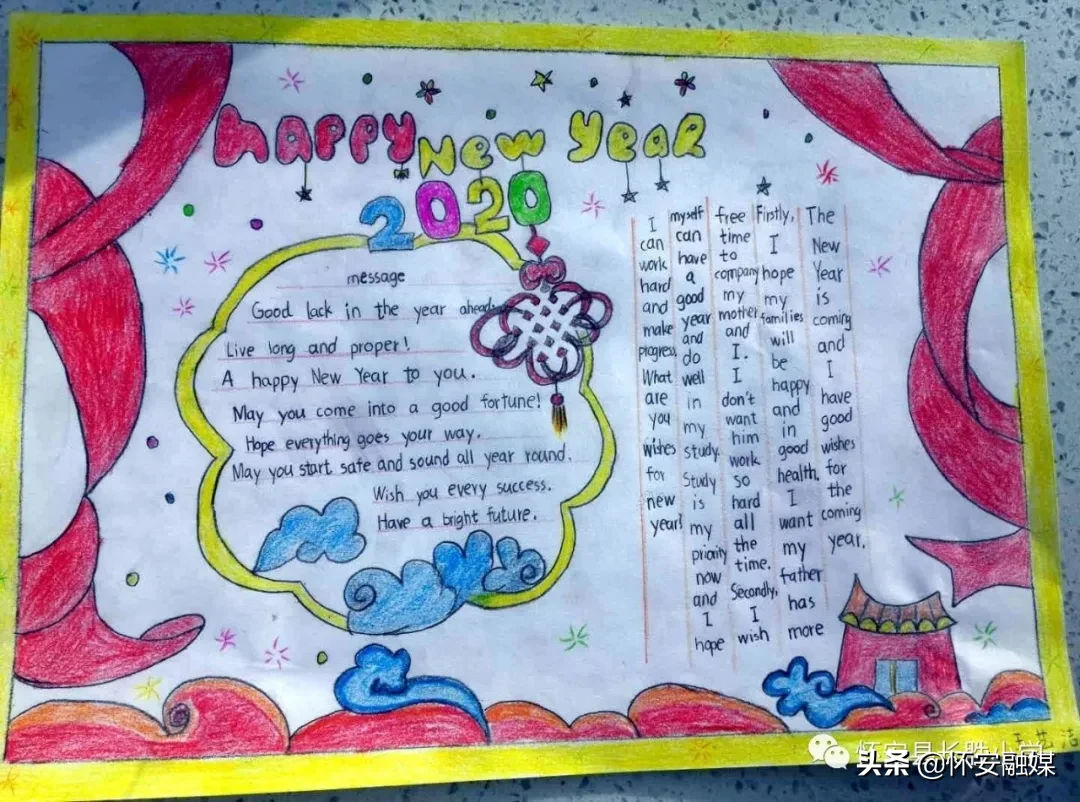 HAPPY New Year
2020
message
Good lack in the year ahead
Live long and proper!
A happy New Year to you.
May you come into a good fortune!
Hope everything goes your way.
May you start safe and sound all year round.
Wish you every success.
Have a bright future.
The New Year is coming and I have good wishes for the coming year.
Firstly, I hope my families will be happy and in good health. I want my father has more
free time to company my mother and I. I don't want him work so hard all the time. Secondly, I wish
myself can have a good year and do well in my study. Study is my priority now and I hope
I can work hard and make progress. What are you wishes for new year?
头条 @怀安融媒